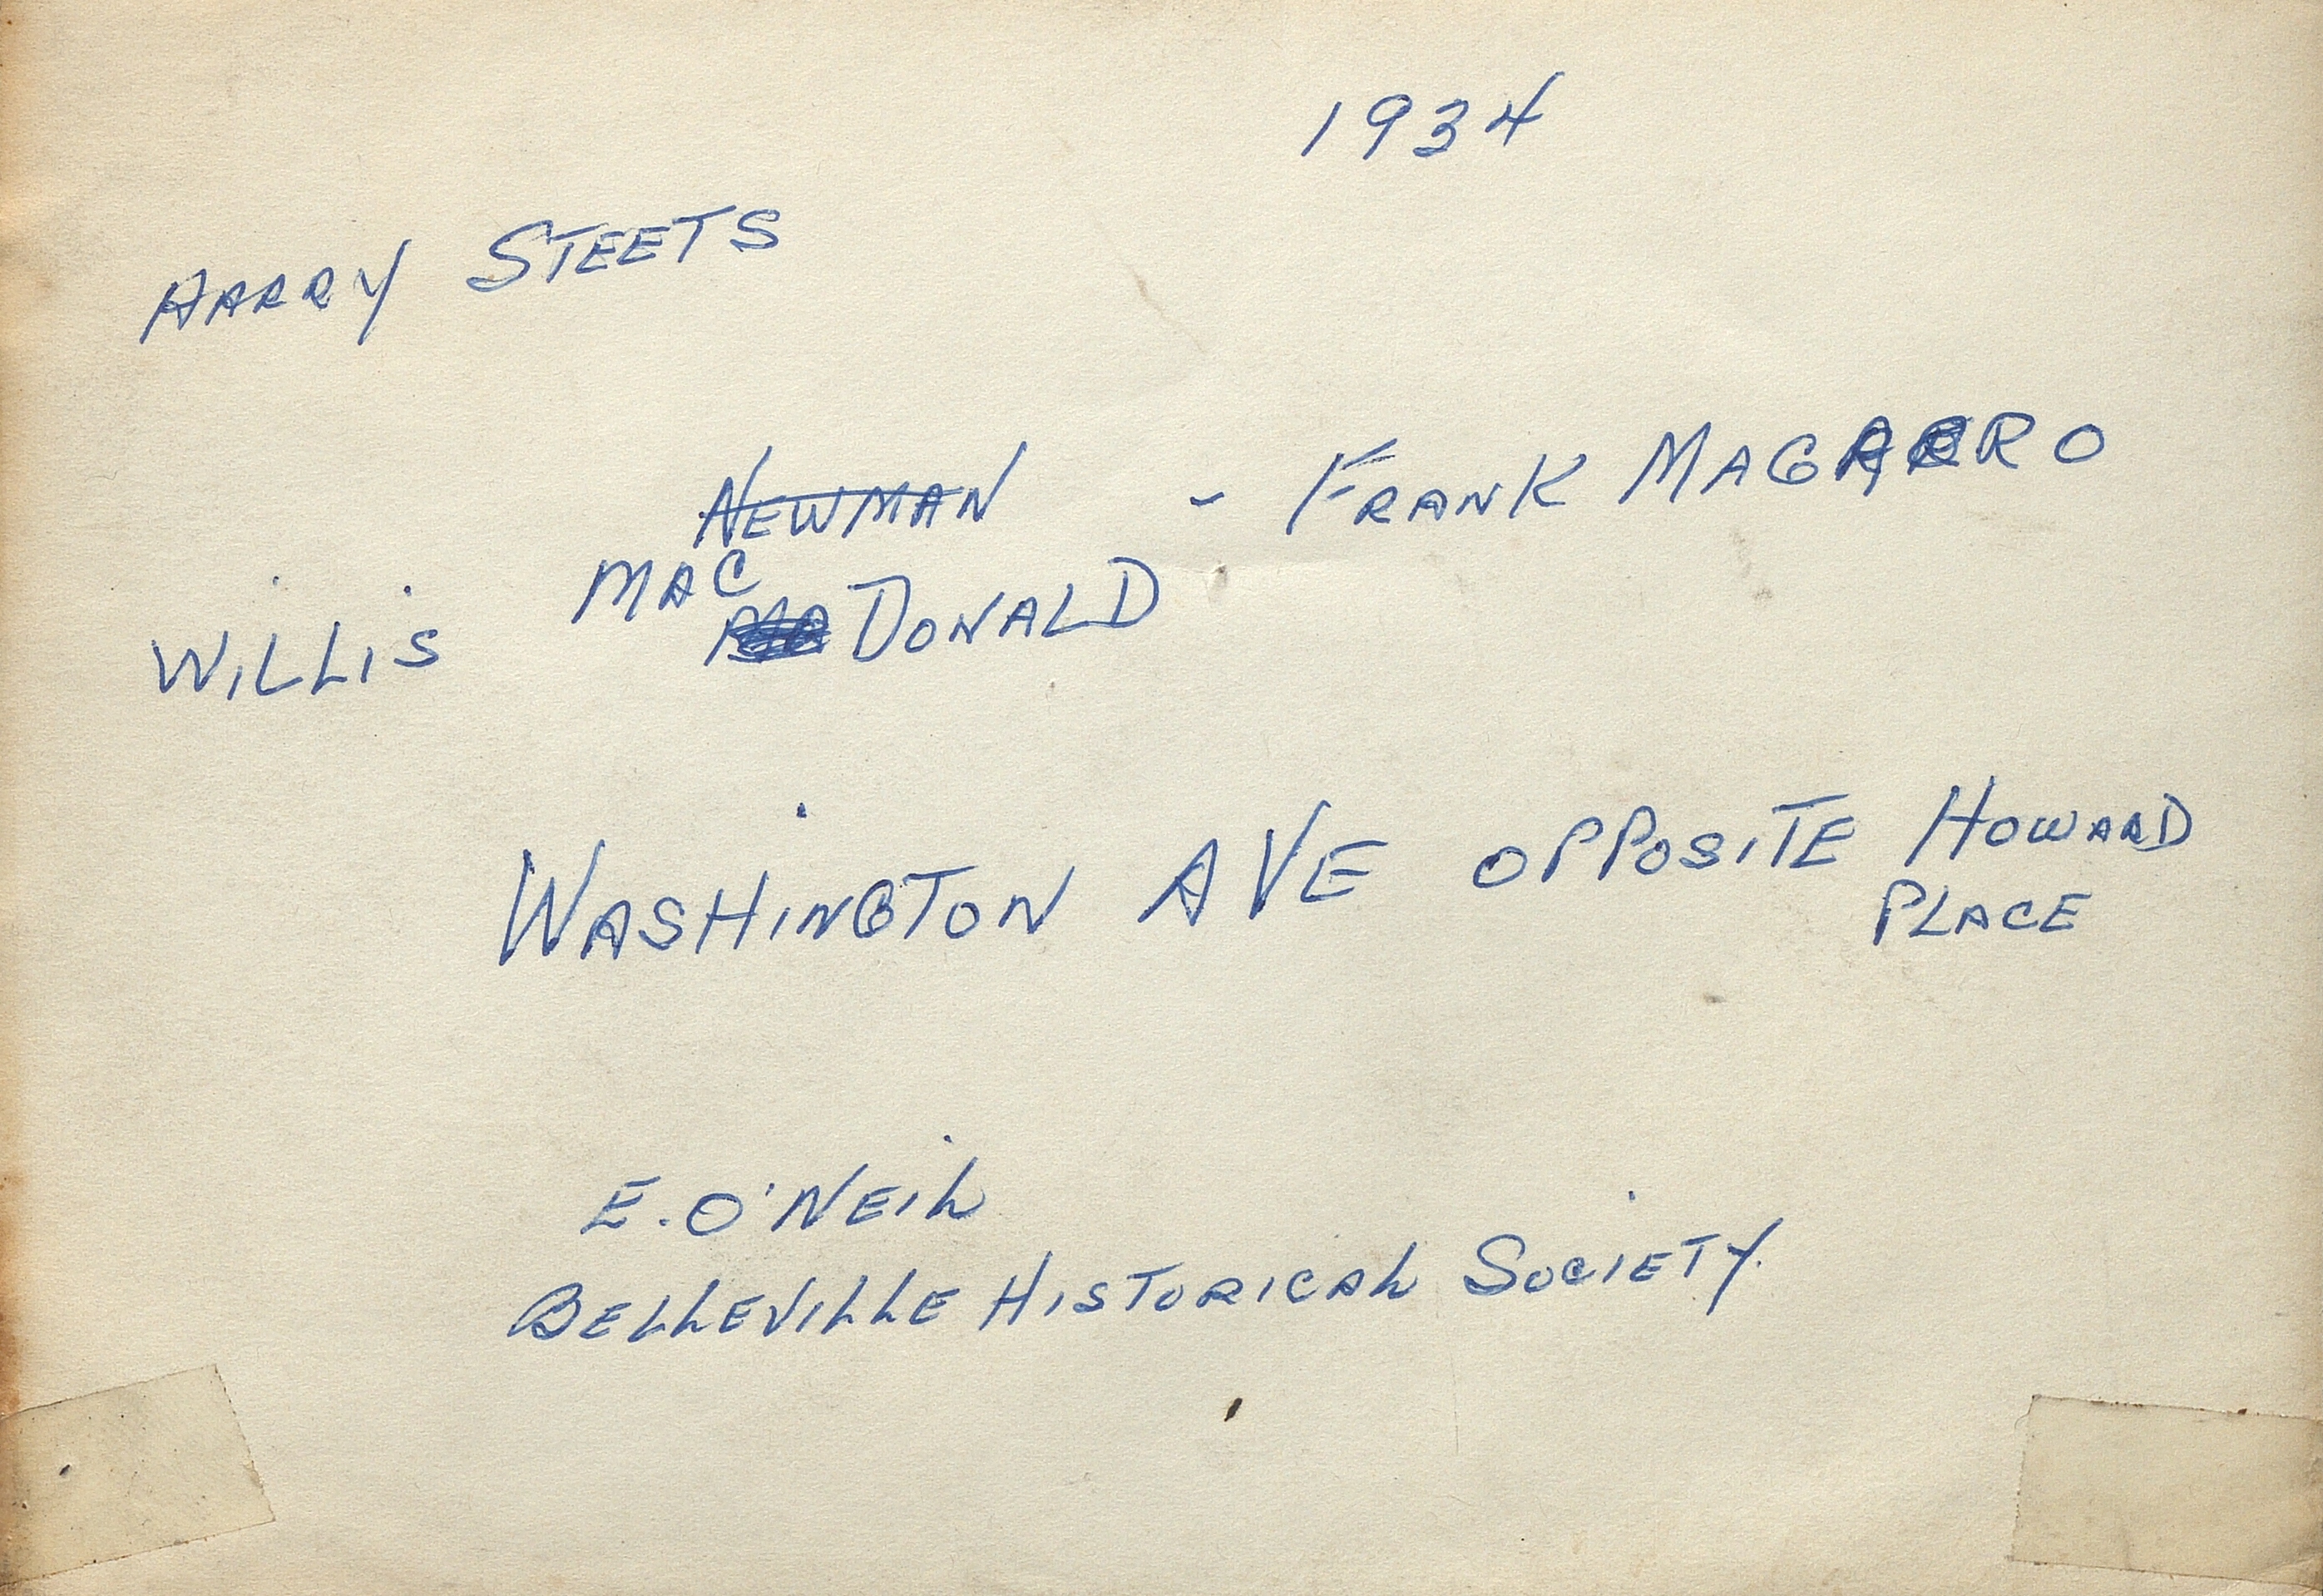 1934
HARRY STEETS
NEWMAN - FRANK MAGARRO
MAC
WILLIS DONALD
WASHINGTON AVE OPPOSITE HOWARD
PLACE
E. O'NEIL
BELLEVILLE HISTORICAL SOCIETY.